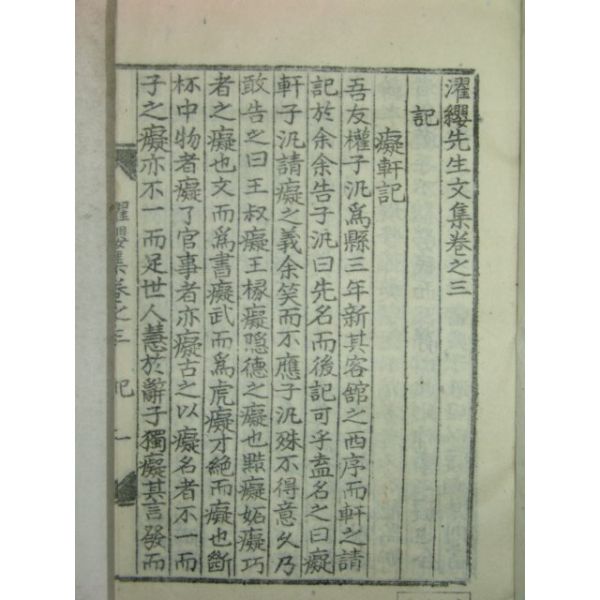 濯纓先生文集卷之三
記
癡軒記
吾友權子汎爲縣三年新其客舘之西序而軒之請
記於余余告子汎曰先名而後記可乎盍名之曰癡
軒子汎請癡之義余笑而不應子汎殊不得意久乃
敢告之曰王叔癡王椽癡隱德之癡也點癡妬癡巧
者之癡也文而爲書癡武而爲虎癡才絶而癡也斷
杯中物者癡了官事者亦癡古之以癡名者不一而
子之癡亦不一而足世人慧於辭子獨癡其言發而
濯纓集卷之三 記 一